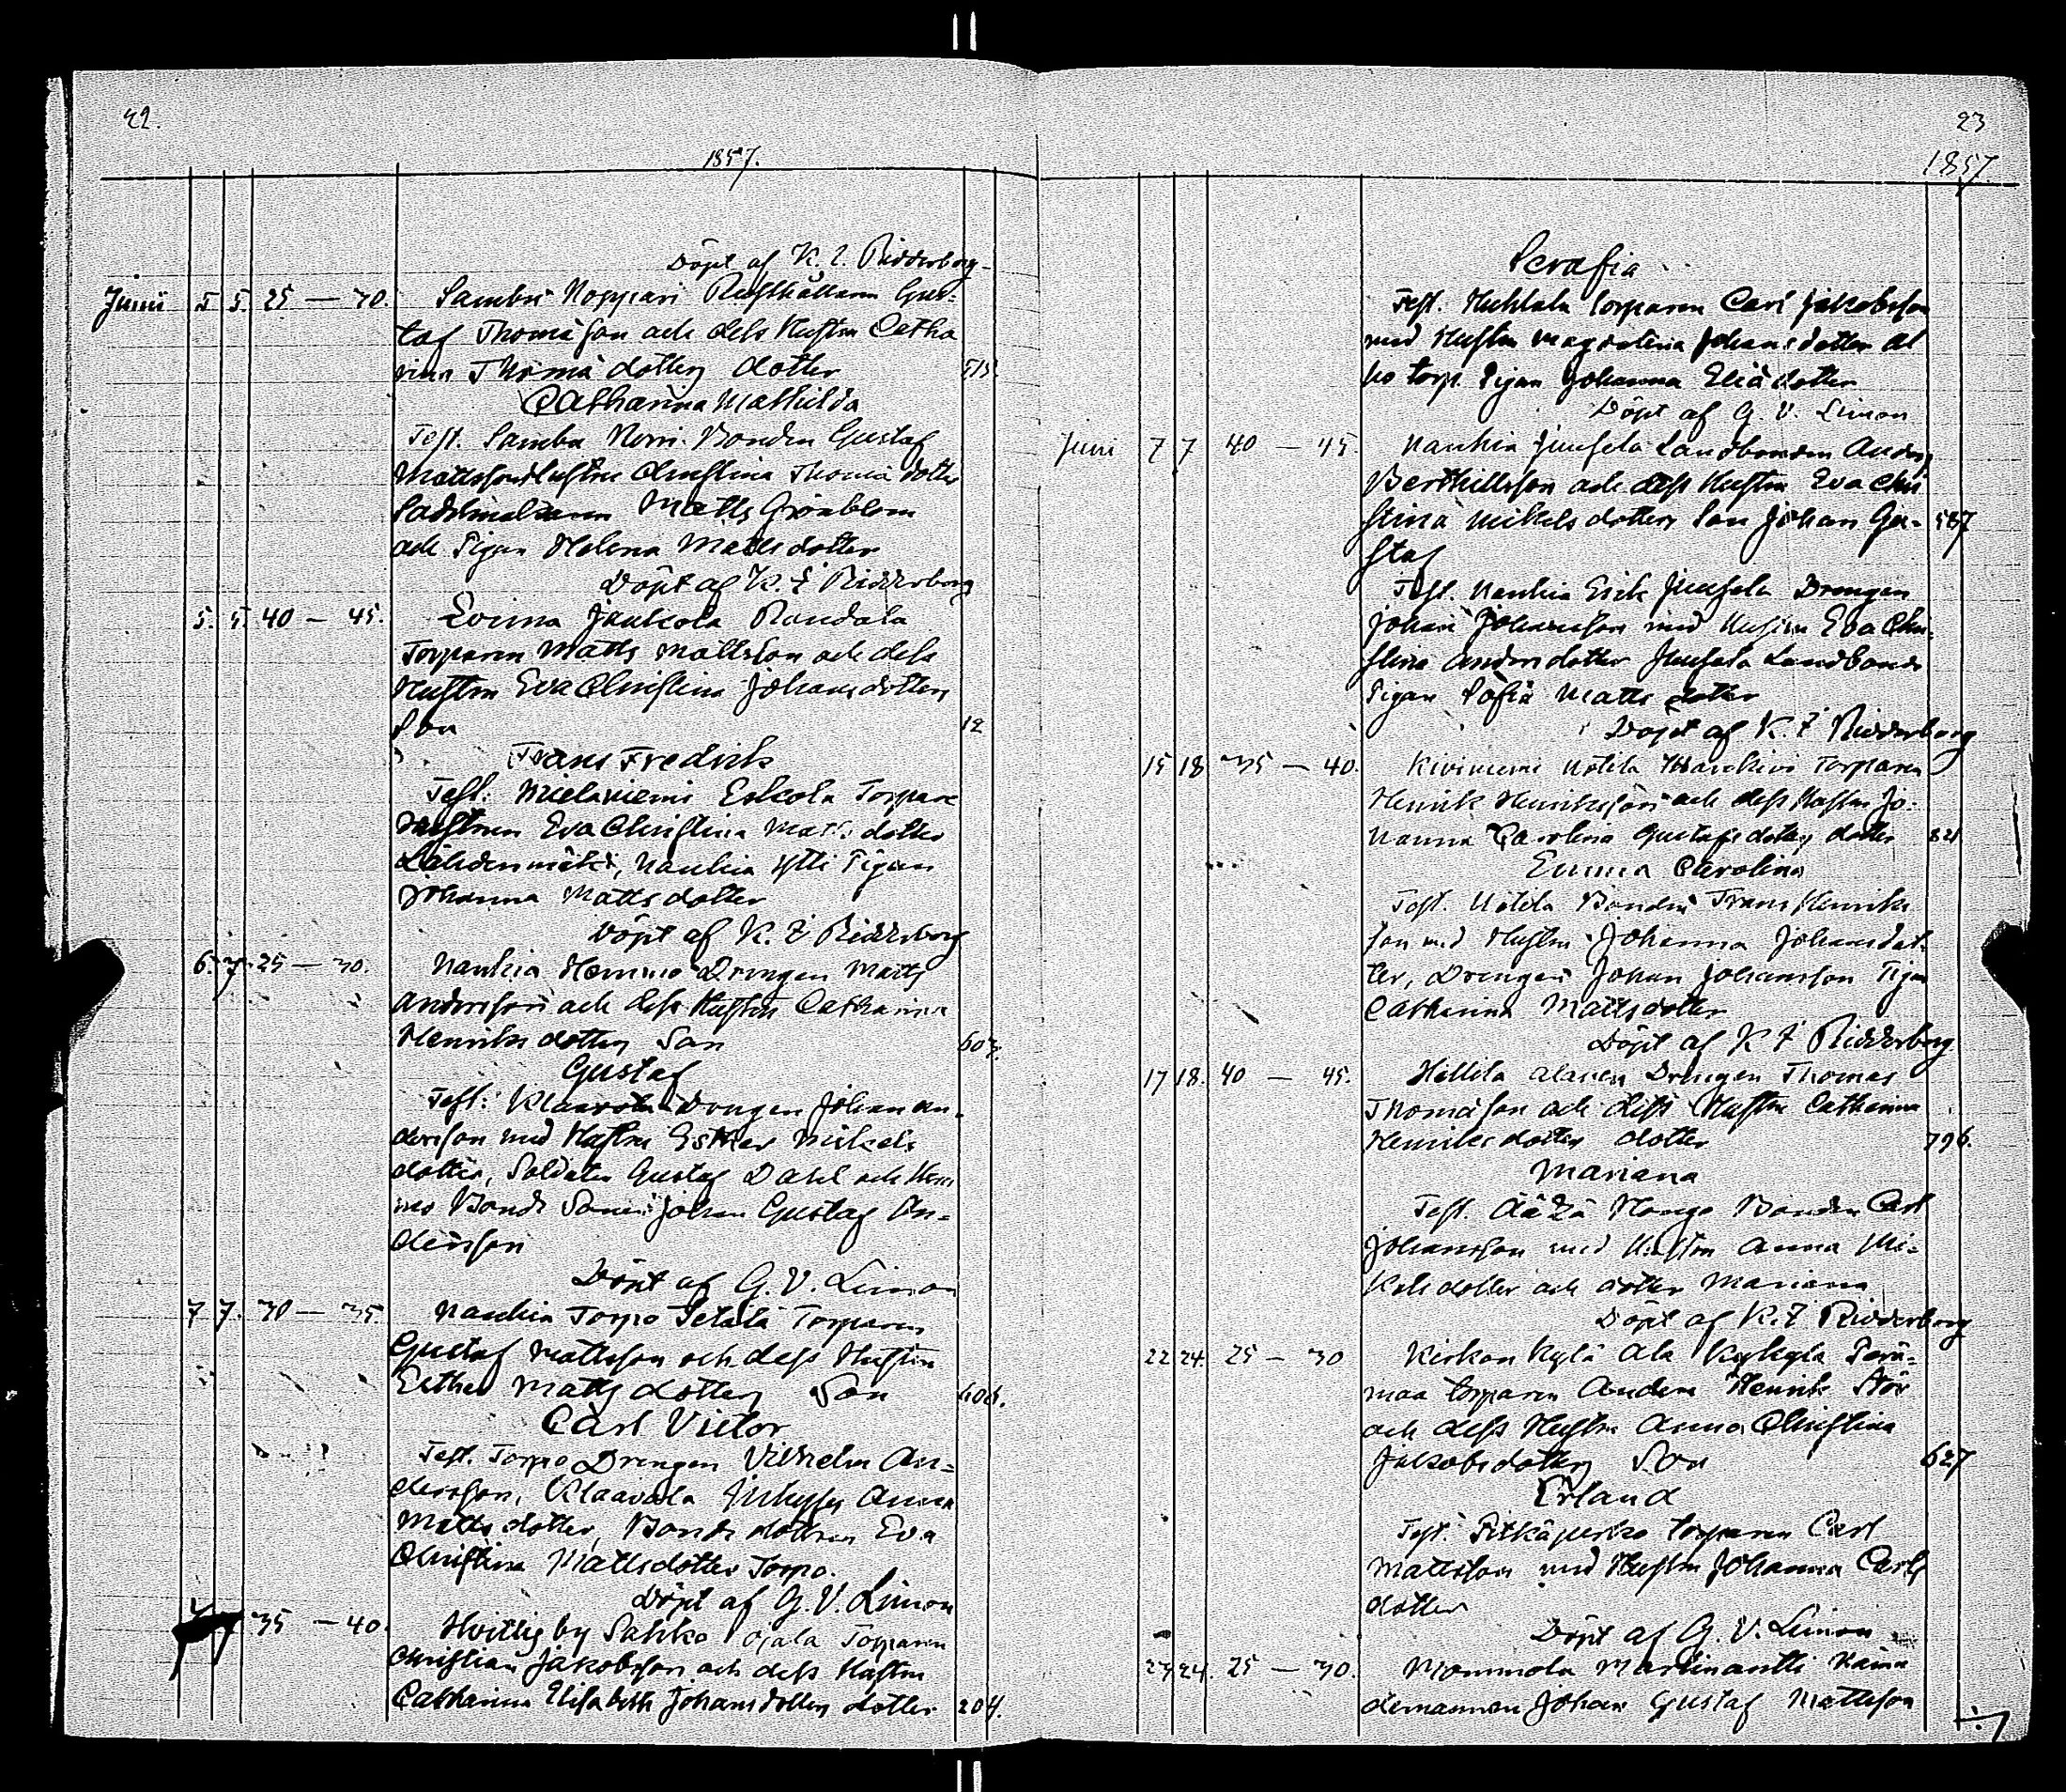 22.
1857.
Döpt af K. E. Ridderborg
Junii 5 5. 25 — 30. Sambu Noppari Rusthållaren Gus-
taf Thomasson och dess Hustru Catha
rina Thomä dotters dotter 515.
Catharina Mathilda
Test. Sambu Bonden Gustaf
Mattsson Hustru Christina Thomä dotter
Sadelmakaren Matts Grönblom
och Pigan Helena Mattsdotter
Döpt af K. E Ridderborg
5. 5. 40 — 45. Evinna Jaakola Randala
Torparen Matts Mattsson och dess
Hustru Eva Christina Johansdotters
Son 12
Frans Fredrik
Test. Mielaniemi Eskola Torpare
Hustrun Eva Christina Matts dotter
Lähdenmäki, Nauhia Ylli Pigan
Johanna Matts dotter
Döpt af K. E Ridderborg
6. 7. 25 — 30. Nauhia Hemmo Drengen Matts
Andersson och dess Hustru Catharina
Henriks dotters Son 603.
Gustaf
Test: Klaavola Drengen Johan An-
dersson med Hustru Esther Mickels
dotter, Soldaten Gustaf Dahl och Hem
mo Bonde Sonen Johan Gustaf An-
dersson
Döpt af G. V. Limon
7 7. 30 — 35 Nauhia Torpo Setälä Torparen
Gustaf Mattsson och dess Hustru
Esther Matts dotters Son
Carl Victor
Test. Torpo Drengen Vilhelm An-
dersson, Klaavola Anna
Matts dotter, Bonde dottren Eva
Christina Mattsdotter Torpo.
Döpt af G. V. Limon
35 — 40. Hvittis by Sahko Ojala Torparen
Christian Jakobsson och dess Hustru
Catharina Elisabeth Johansdotters dotter 204.
23
1857
Serafia
Test. Huhtala torparen Carl Jakobsson
med Hustru Magdalena Johans dotter
torp. Pigan Johanna Eliä dotter
Döpt af G. V. Limon
Juni 7 7 40 — 45. Nauhia Junsela Landbonden Anders
Berthillsson och dess Hustru Eva Chri
stina Mikels dotters Son Johan Gu- 587
staf
Test. Nauhia Erik Junsela Drengen
Johan Johansson med Hustru Eva Chri-
stina Anders dotter Junsela Landbonde
Pigan Sofia Matts dotter
Döpt af K. E Ridderborg
15 18 35 — 40. Kiviniemi Uotila Torparen
Henrik Henriksson och dess Hustru Jo-
hanna Carolina Gustafs dotters dotter 821.
Emma Carolina
Test. Uotila Bonden Frans Henriks
son med Hustru Johanna Johansdot-
ter, Drengen Johan Johansson Pigan
Catharina Mattsdotter
Döpt af K E Ridderborg
17 18. 40 — 45. Hellila Alanen Drengen Thomas
Thomäson och dess Hustru Catharina
Henriks dotters dotter 796.
Mariana
Test. Hongo Bonden Carl
Johansson med Hustru Anna Mi-
kels dotter och dotter Mariana
Döpt af K. E Ridderborg
22 24. 25 — 30 Kirkon kylä Ala Perä-
maa torparen Anders Henrik Stör
och dess Hustru Anna Christina
Jakobs dotters Son 627
Erland
Test. Pitkäperko torparen Carl
Mattsson med Hustru Johanna Carls
dotter
Döpt af G. V. Limon
23 24. 25 — 30. Mommola Martinantti Näm
demannen Johan Gustaf Mattsson